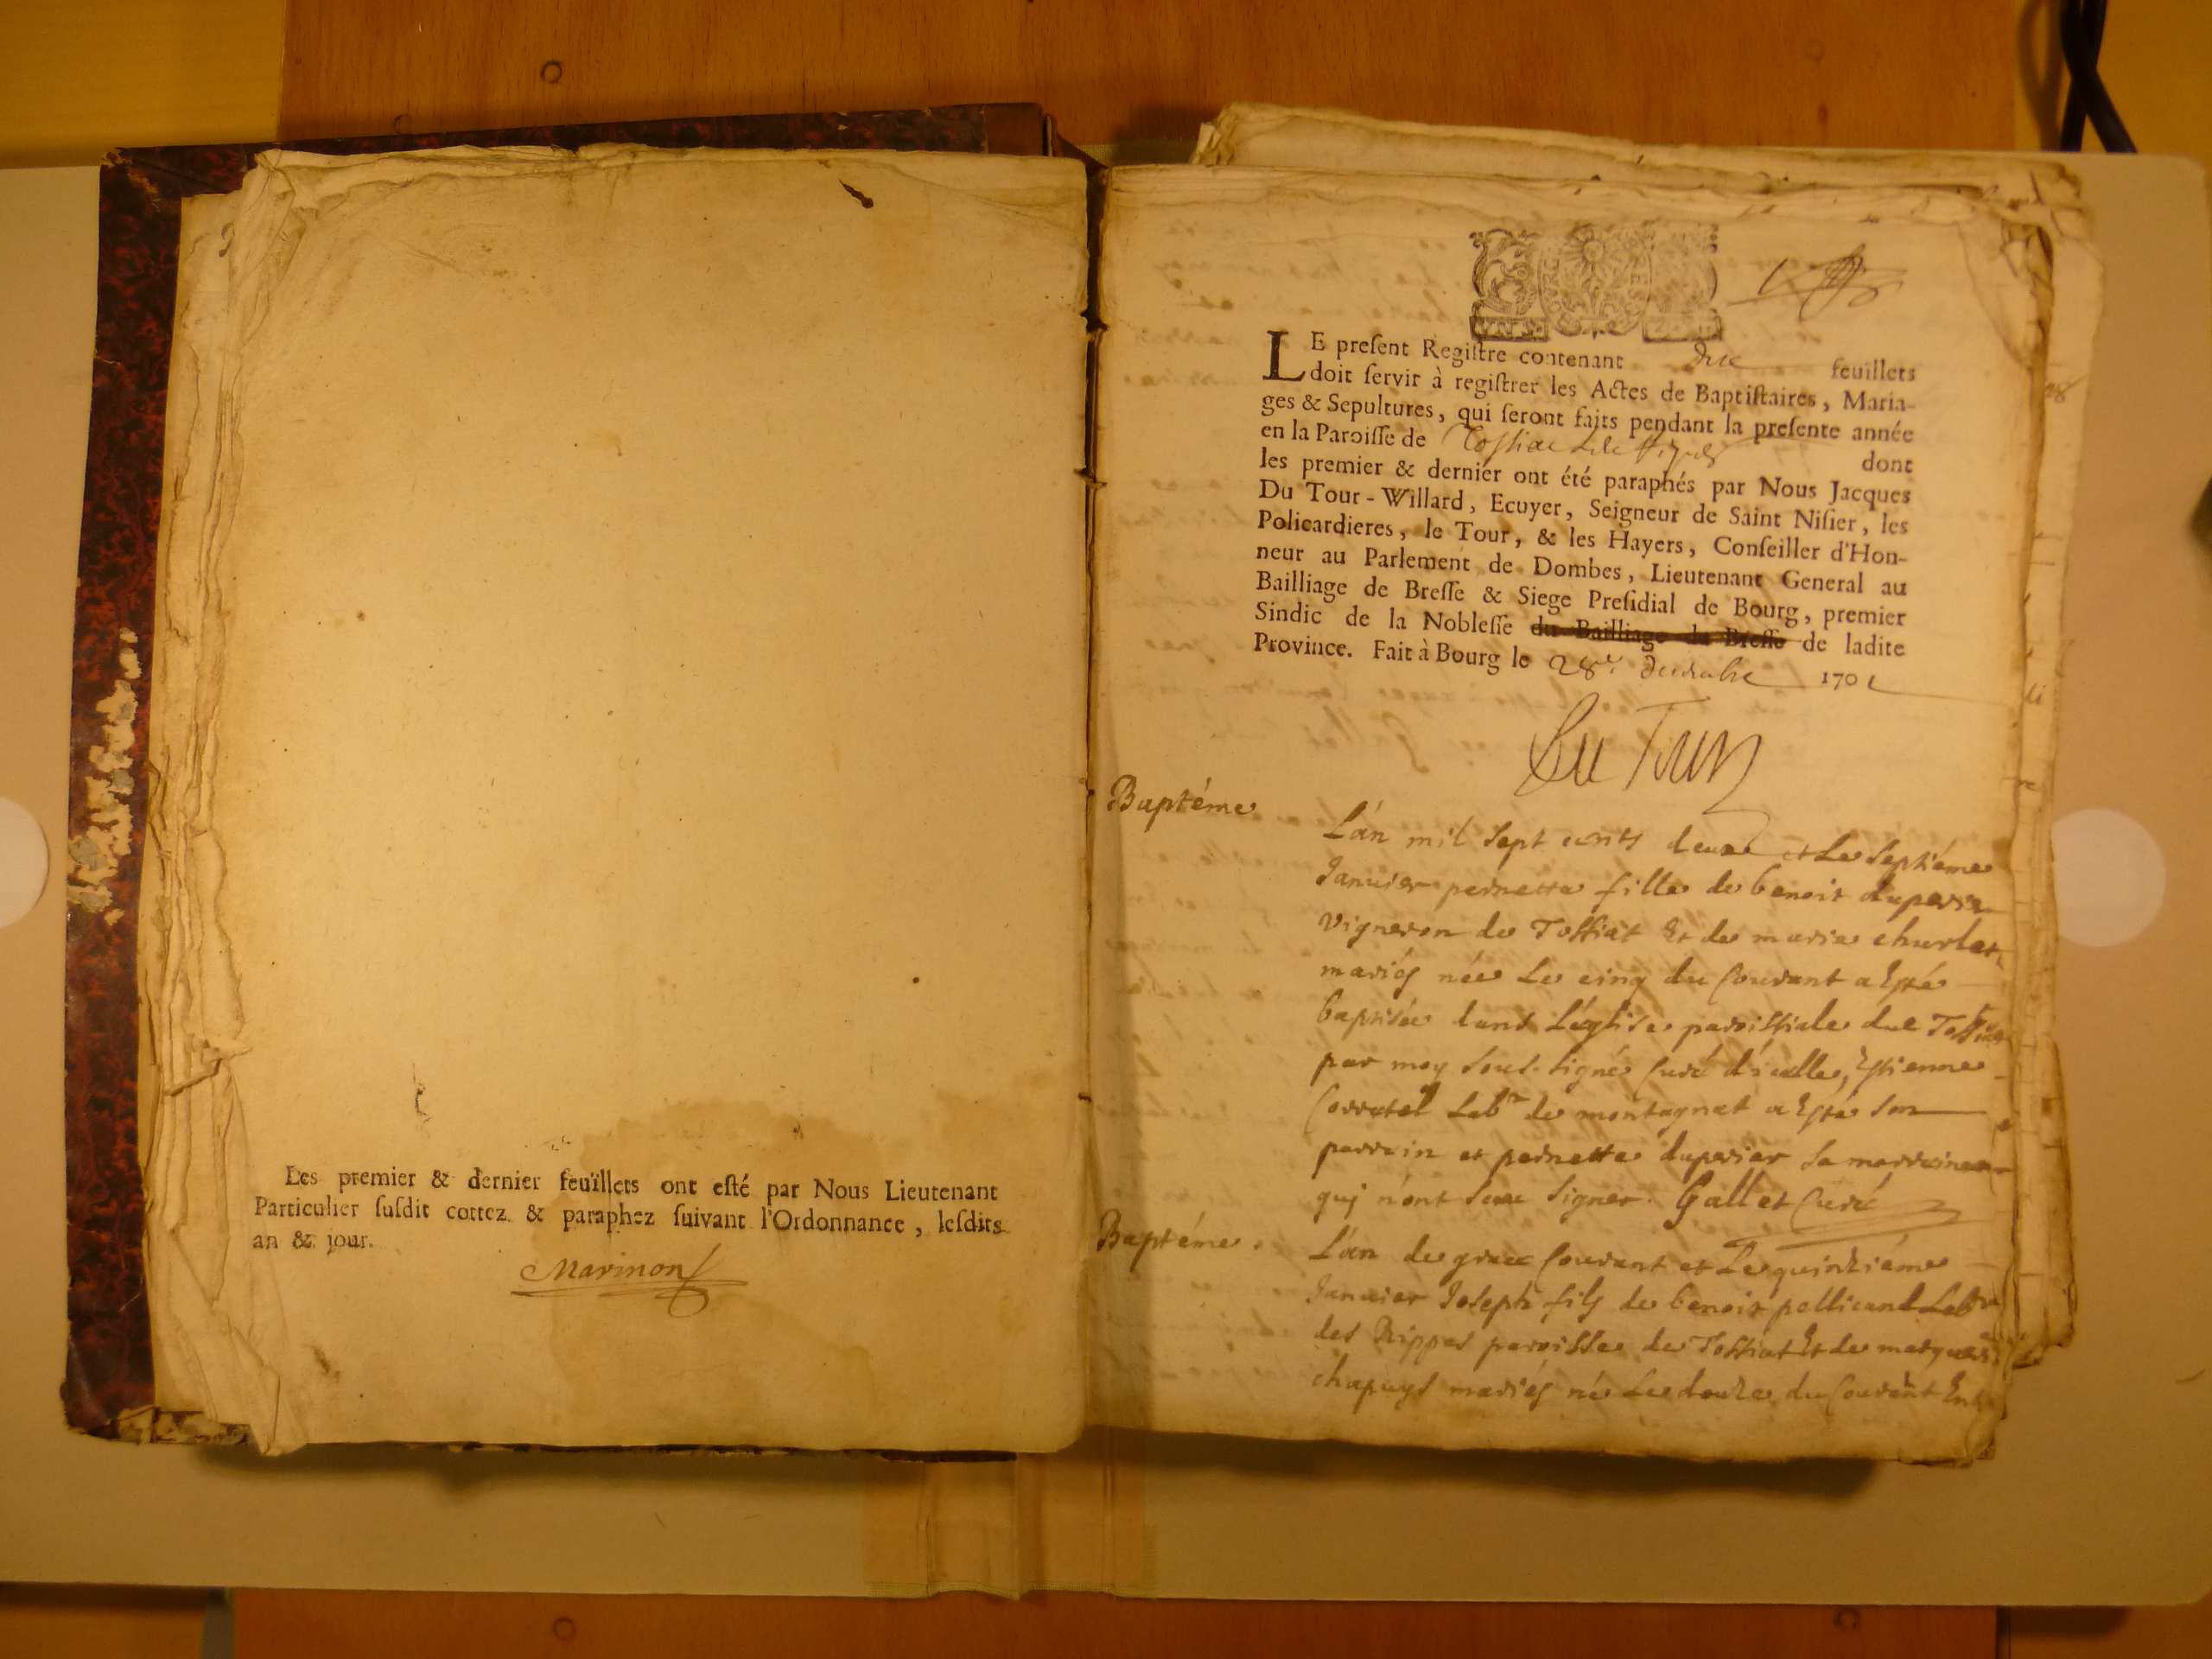 Les premier & dernier feüillets ont esté par Nous Lieutenant
Particulier susdit cottez & paraphez suivant l'Ordonnance, lesdits
an & jour.
Marinon
LE present Registre contenant feuillets
doit servir à registrer les Actes de Baptistaires, Maria-
ges & Sepultures, qui seront faits pendant la presente année
en la Paroisse de Tossiat dont
les premier & dernier ont été paraphés par Nous Jacques
Du Tour-Willard, Ecuyer, Seigneur de Saint Nisier, les
Policardieres, le Tour, & les Hayers, Conseiller d'Hon-
neur au Parlement de Dombes, Lieutenant General au
Bailliage de Bresse & Siege Presidial de Bourg, premier
Sindic de la Noblesse du Bailliage de Bresse de ladite
Province. Fait à Bourg le 28e decembre 1701
Du Tour
Baptéme
L'an mil sept cents deux et Le septiéme
Janvier pernette fille de benoit duperier
vigneron de Tossiat Et de marie charlet
mariés née Le cinq du Courant a Esté
baptisée dans L'église paroissiale de Tossiat
par moy sous-signé Curé d'icelle, Estienne
Corratel Labr de montagnat a Esté son
parrain et pernette duperier sa marraine
qui n'ont sceu signer. Gallet Curé
Baptéme.
L'an de grace Courant et Le quinziéme
Janvier Joseph fils de benoit pellicand Labr
des Rippes paroisse de Tossiat Et de
chapuys mariés né Le douze du Courant